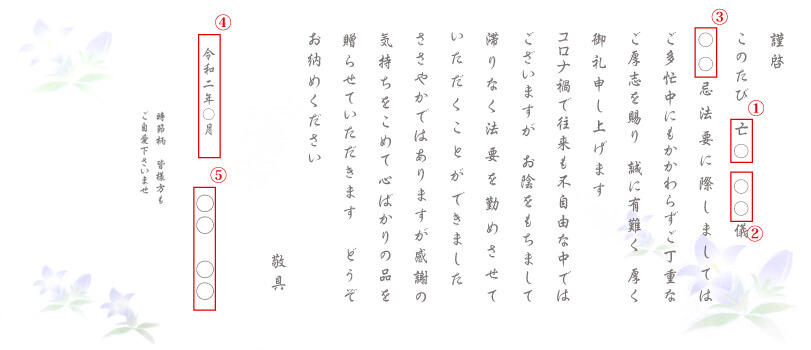 謹啓
このたび 亡○ ○○儀
○○忌法要に際しましては
ご多忙中にもかかわらずご丁重な
ご厚志を賜り 誠に有難く 厚く
御礼申し上げます
コロナ禍で往来も不自由な中では
ございますが お陰をもちまして
滞りなく法要を勤めさせて
いただくことができました
ささやかではありますが感謝の
気持ちをこめて心ばかりの品を
贈らせていただきます どうぞ
お納めください
敬具
令和二年○月
○○ ○○
時節柄 皆様方も
ご自愛下さいませ
①
②
③
④
⑤